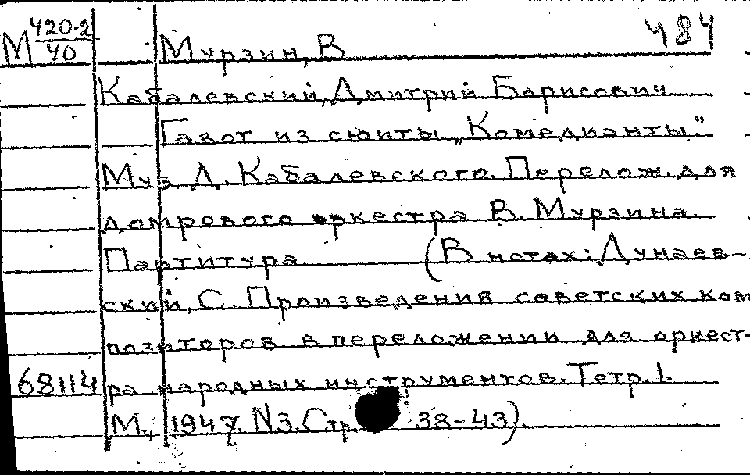 М 420-2/40 Мурзин, В 484
Кабалевский, Дмитрий Борисович
Гавот из сюиты „Комедианты"
Муз Д. Кабалевского. Перелож. для
домрового оркестра В. Мурзина.
Партитура (В нотах: Дунаев-
ский, С. Произведения советских ком
позиторов в переложении для оркест-
68114 ра народных инструментов. Тетр. 1.
М., 1947. N3. Стр. 38-43).